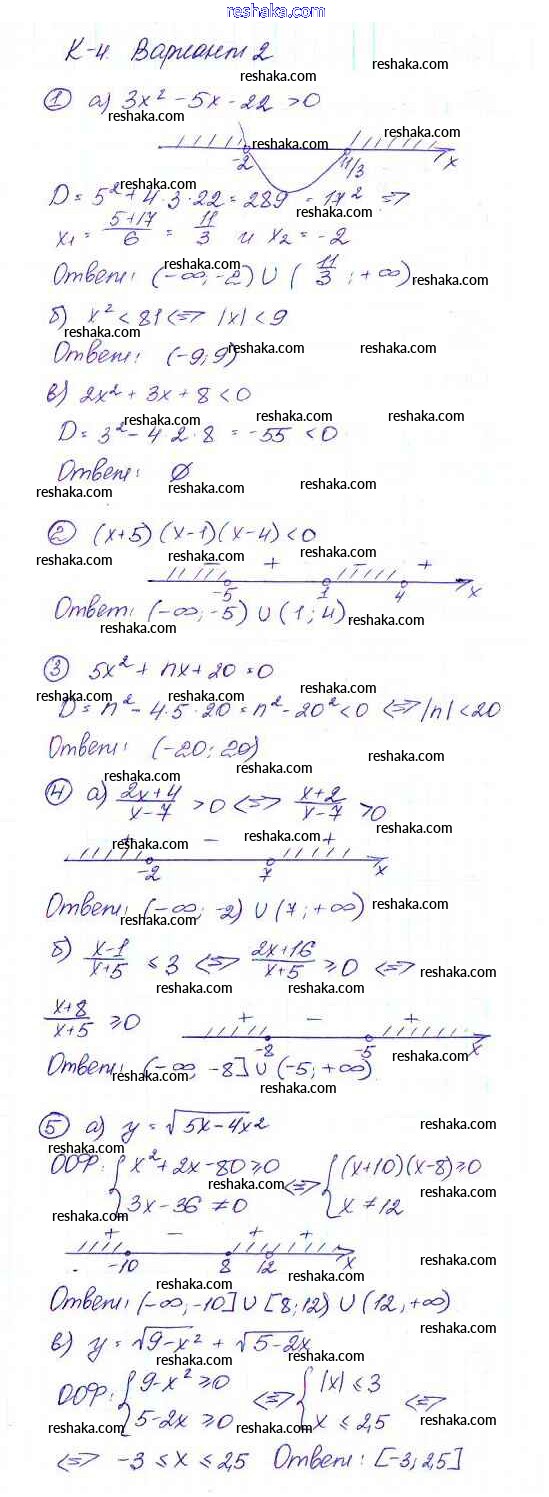 www.reshaka.com
К-4. Вариант 2
① а) 3x² - 5x - 22 > 0
-2 11/3 x
D = 5² + 4·3·22 = 289 = 17² ⇒
x₁ = (5+17)/6 = 11/3 и x₂ = -2
Ответ: (-∞; -2) ∪ (11/3; +∞)
б) x² < 81 ⇔ |x| < 9
Ответ: (-9; 9)
в) 2x² + 3x + 8 < 0
D = 3² - 4·2·8 = -55 < 0
Ответ: ∅
② (x+5)(x-1)(x-4) < 0
- + - +
-5 1 4 x
Ответ: (-∞; -5) ∪ (1; 4)
③ 5x² + nx + 20 = 0
D = n² - 4·5·20 = n² - 20² < 0 ⇔ |n| < 20
Ответ: (-20; 20)
④ а) (2x+4)/(x-7) > 0 ⇔ (x+2)/(x-7) > 0
+ - +
-2 7 x
Ответ: (-∞; -2) ∪ (7; +∞)
б) (x-1)/(x+5) ≤ 3 ⇔ (2x+16)/(x+5) ≥ 0 ⇔
(x+8)/(x+5) ≥ 0
+ - +
-8 -5 x
Ответ: (-∞; -8] ∪ (-5; +∞)
⑤ а) y = √(5x-4x2
ООФ: { x² + 2x - 80 ≥ 0 ⇔ { (x+10)(x-8) ≥ 0
3x - 36 ≠ 0 x ≠ 12
+ - + +
-10 8 12 x
Ответ: (-∞; -10] ∪ [8; 12) ∪ (12; +∞)
в) y = √(9-x²) + √(5-2x)
ООФ: { 9-x² ≥ 0 ⇔ { |x| ≤ 3 ⇔
5-2x ≥ 0 x ≤ 2,5
⇔ -3 ≤ x ≤ 2,5 Ответ: [-3; 2,5]